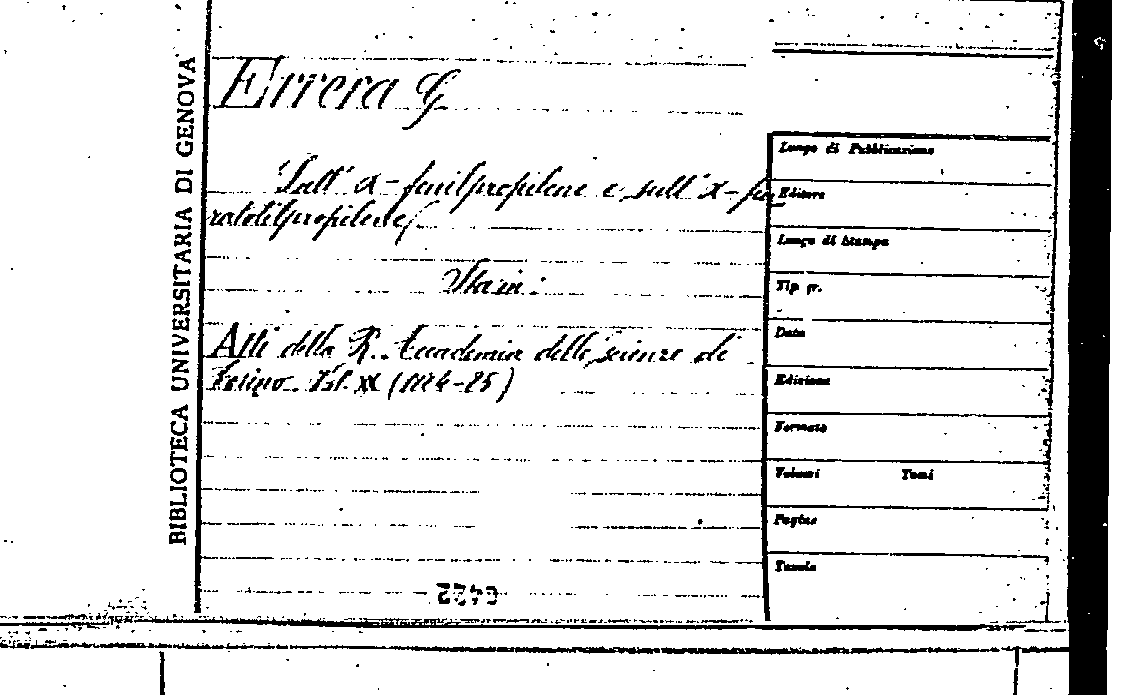 BIBLIOTECA UNIVERSITARIA DI GENOVA
Errera G
Sull' α-fenilpropilene e sull' α-pa
ratolilpropilene
Stain:
Atti della R. Accademia delle scienze di
Torino. Vol. XX (1884-85)
Luogo di Pubblicazione
Editore
Luogo di Stampa
Tip gr.
Data
Edizione
Formato
Volumi Tomi
Pagine
Tavole